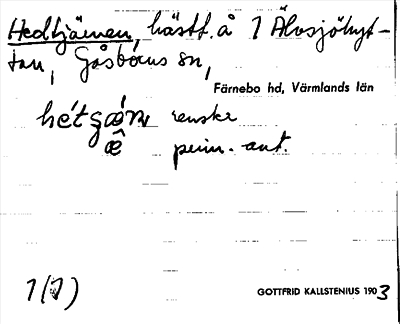 Hedtjärnen, hästf. å 1 Älvsjöhyt-
tan, Gåsborns sn,
Färnebo hd, Värmlands län
hétçǽrn svenska
ǣ̂ pers. ant.
1(1)
GOTTFRID KALLSTENIUS 1903